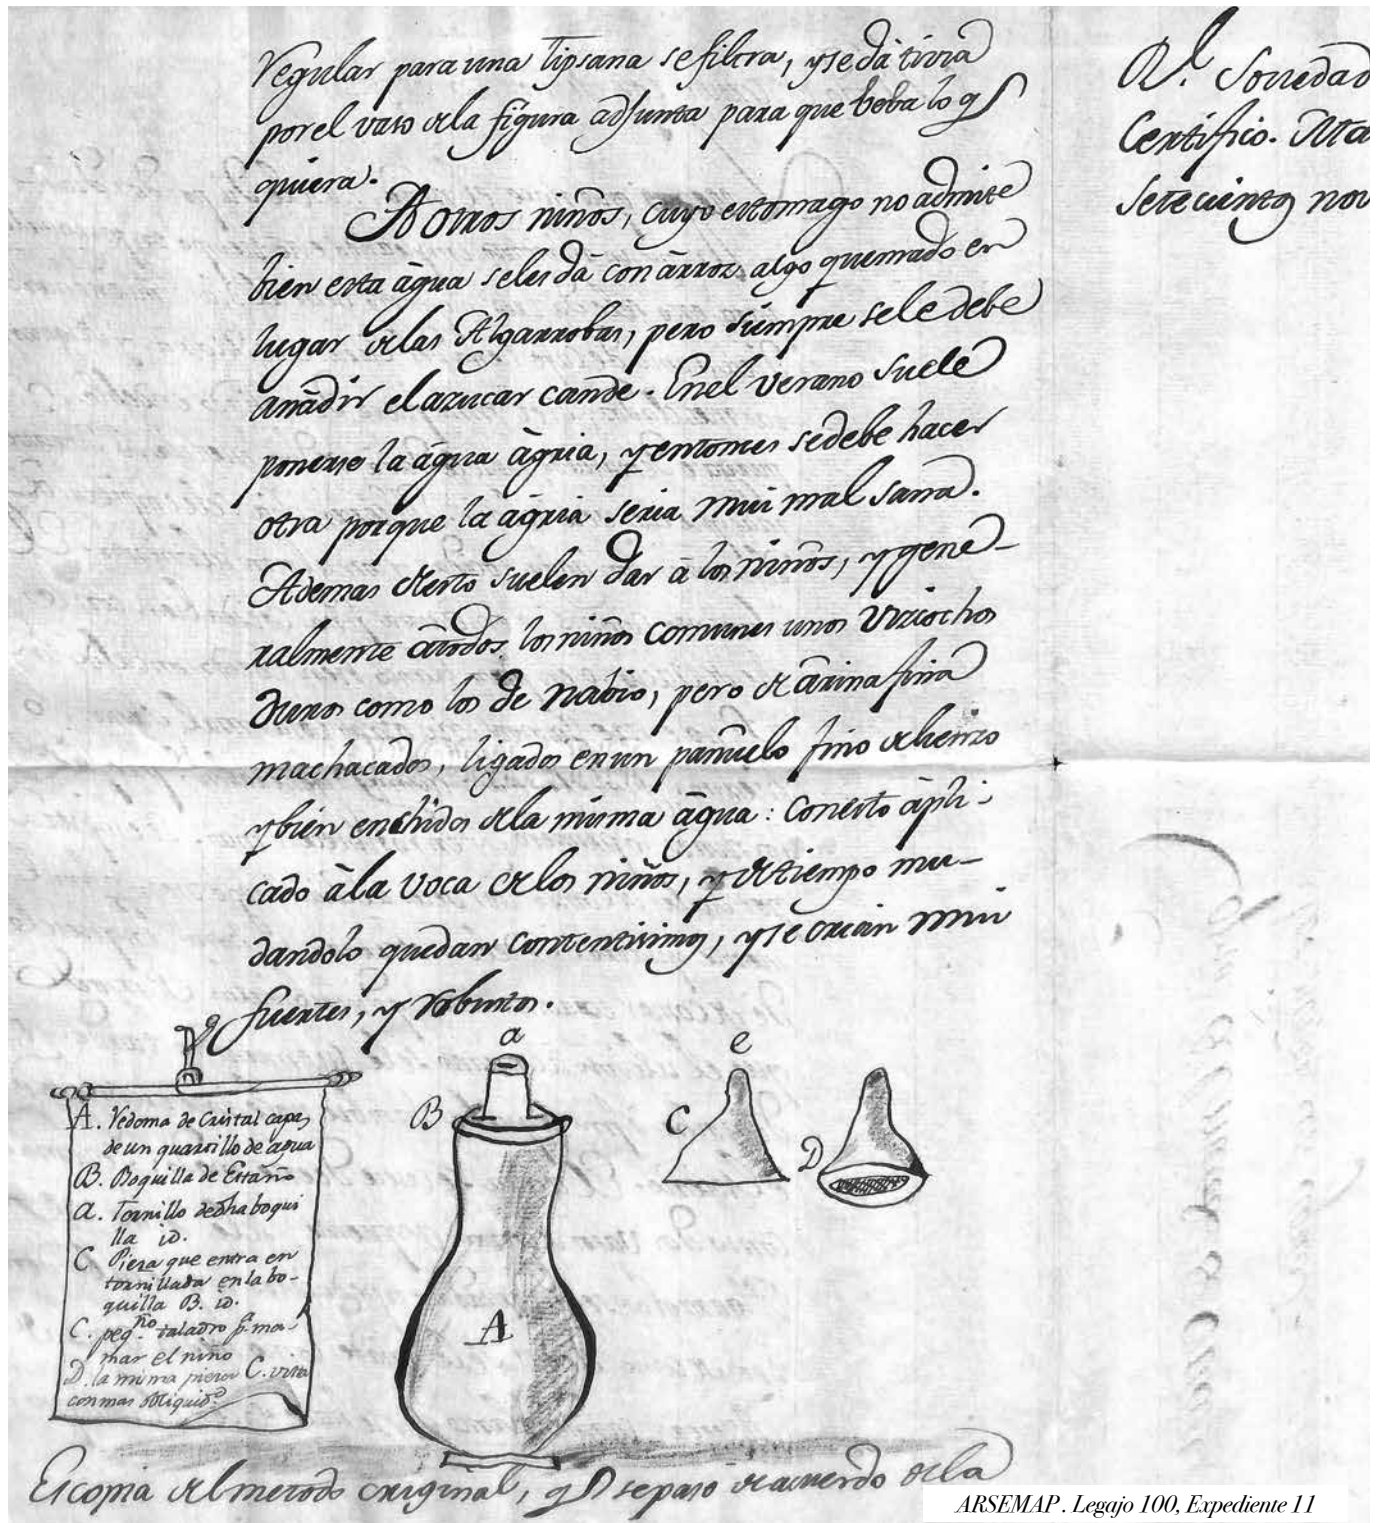 Regular para una Tipsana se filtra, y se dà tivia
por el vaso de la figura adjunta para que beba lo q.e
quiera.
A otros niños, cuyo estomago no admite
bien esta àgua se les dà con àrroz algo quemado en
lugar de las Algarrobas, pero siempre se le debe
añadir el azucar cande. En el verano suele
ponerse la àgua àgria, y entonces se debe hacer
otra porque la àgria seria mui mal sana.
Ademas de esto suelen dar à los niños, y gene-
ralmente à todos los niños comunes unos vizcochos
duros como los de nabio, pero de àrina fina
machacados, ligados en un pañuelo fino de lienzo
y bien enchidos de la misma àgua: con esto àpli-
cado à la voca de los niños, y de tiempo mu-
dandolo quedan contentisimos, y se crian mui
fuertes, y robustos.
a
e
B
C
D
A
A. Redoma de Cristal capaz
de un quartillo de agua
B. Boquilla de Estaño
a. Tornillo de dha boqui
lla id.
C Pieza que entra en
tornillada en la bo-
quilla B. id.
C. peq.ño taladro p.a ma-
mar el niño
D. la misma pieza C. vista
con mas obliquid.d
Es copia del metodo original, q.e se pasò de acuerdo de la
R.l Sociedad
Certifico. Ma
setecientos nov
ARSEMAP. Legajo 100, Expediente 11